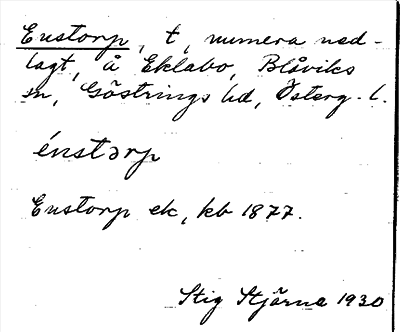 Enstorp, t, numera ned-
lagt, å Eklabo, Blåviks
sn, Göstrings hd, Österg. l.
énstərp
Enstorp ek, kb 1877.
Stig Stjärna 1930